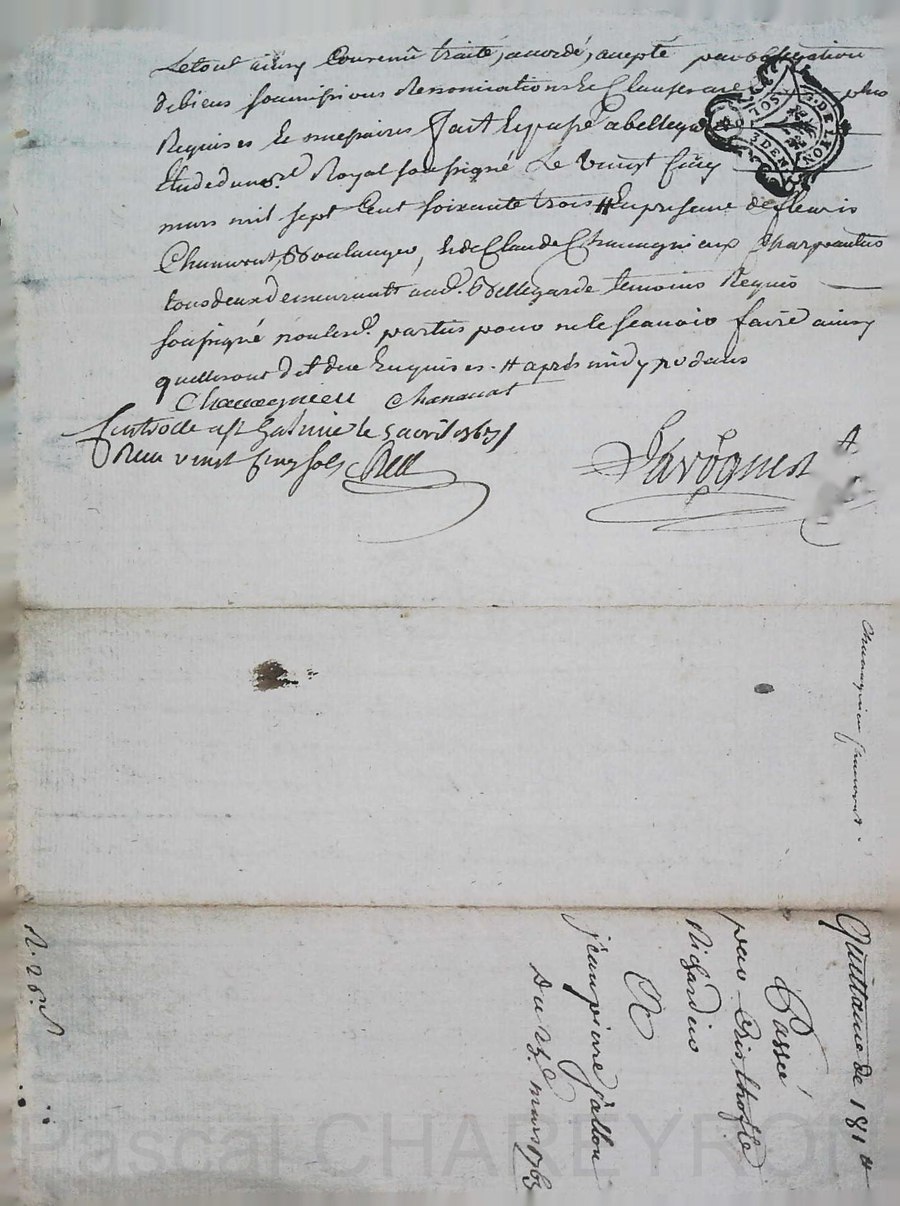 Letout ainsy Convenû traité, accordé, accepté par obligation
de biens soumissions Renonciations & Clauses
Requises & nessaires fait & passé a bellega
Etude du no.re Royal soussigné Le vingt Cinq
mars mil sept Cent soixante trois # En presence de fleuris
Chanavat Boulanger, & de Claude Chavagnieux Charpentier
tous deux demeurants aud. Bellegarde temoins Requis
soussigné non lesd. parties pour ne le scavoir faire ainsy
quelles ont dit de ce Enquises. # après midy
Chavagnieu Chanavat
Controlle a St Galmier le 5 avril 1763
Reçu vingt Cinq sols
SOLS 3 DEN
G. DE LYON
Chavagnieu Chanavat.
Quittance de 181 #
Passée
par Cristhofle
Richardins
A
jean pierre jallon
Du 25.e mars 1763
Pascal CHAREYRON